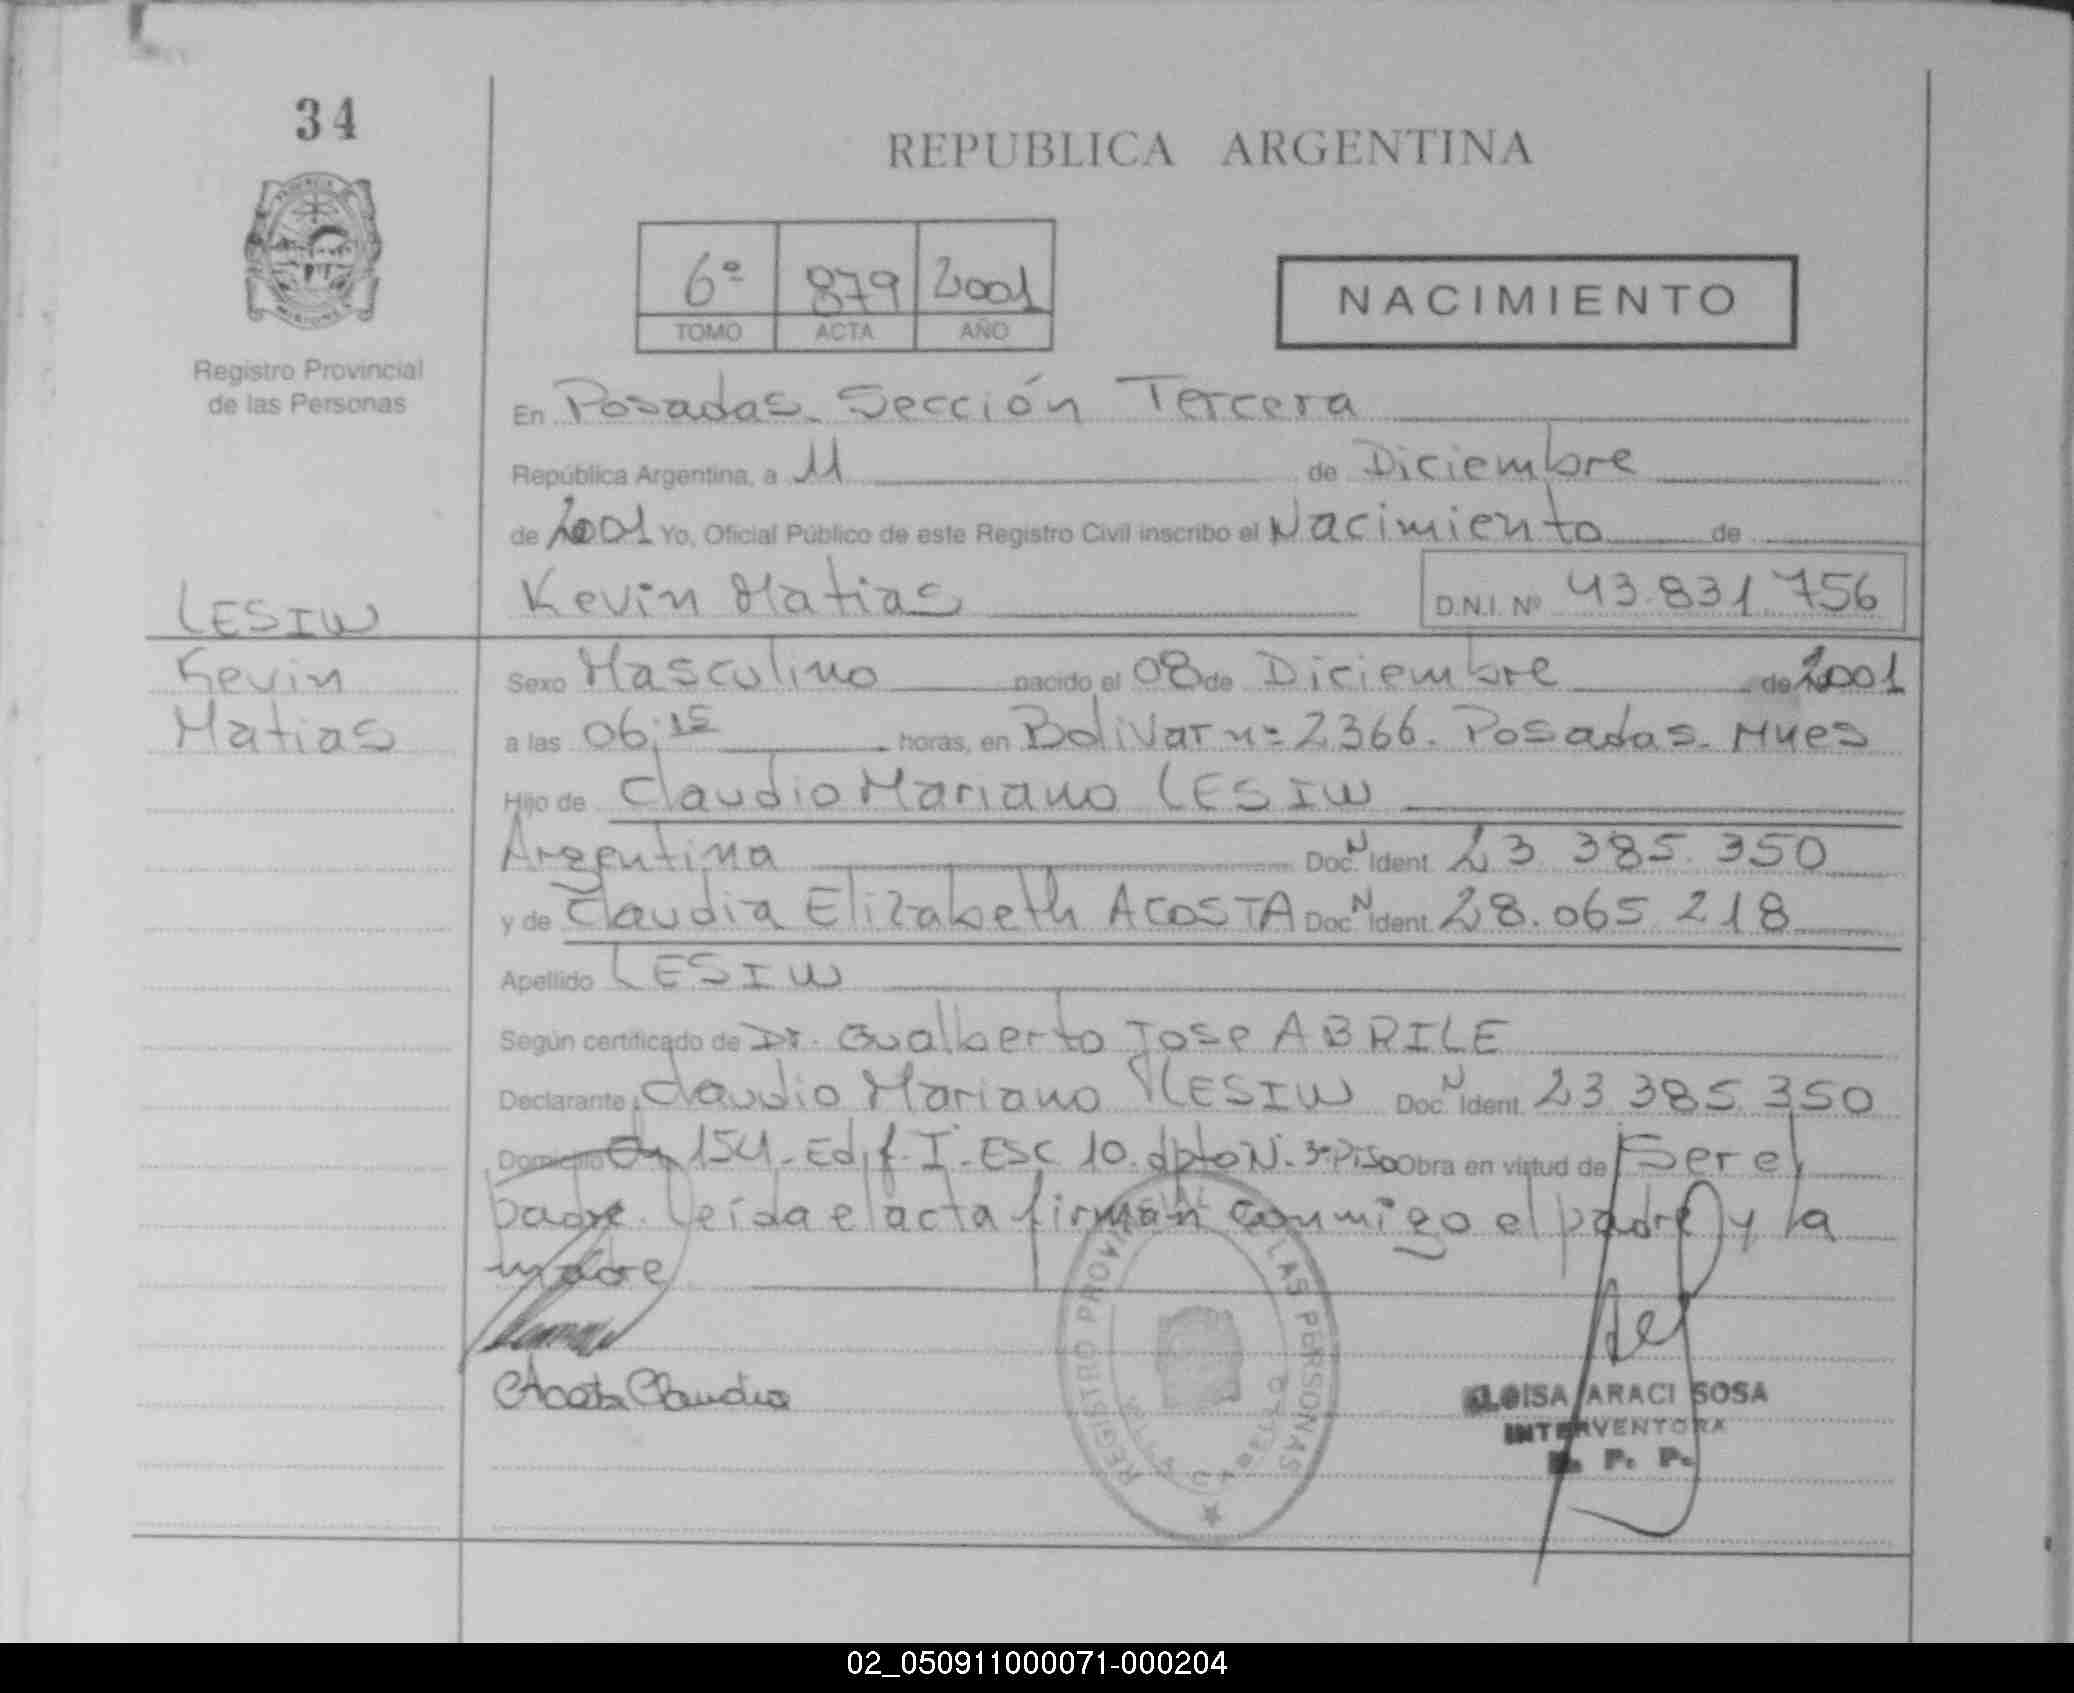 34
REPUBLICA ARGENTINA
6º 879 2001
TOMO ACTA AÑO
NACIMIENTO
Registro Provincial
de las Personas
En Posadas. Sección Tercera
República Argentina, a 11 de Diciembre
de 2001 Yo, Oficial Público de este Registro Civil inscribo el Nacimiento de
Kevin Matias D.N.I. Nº 43.831.756
LESIW
Kevin
Matias
Sexo Masculino nacido el 08 de Diciembre de 2001
a las 06:15 horas, en Bolivar nº 2366. Posadas. Mnes
Hijo de Claudio Mariano LESIW
Argentina Doc. N Ident. 23.385.350
y de Claudia Elizabeth ACOSTA Doc. N Ident. 28.065.218
Apellido LESIW
Según certificado de Dr. Gualberto Jose ABRILE
Declarante Claudio Mariano LESIW Doc. N Ident. 23.385.350
Domicilio Ch 154. Edif. I. ESC. 10. dpto N. 3º Piso Obra en virtud de Ser el
padre. leída el acta firman conmigo el padre y la
madre
Acosta Claudia
REGISTRO PROVINCIAL DE LAS PERSONAS
ELOISA ARACI SOSA
INTERVENTORA
R. P. P.
02_050911000071-000204